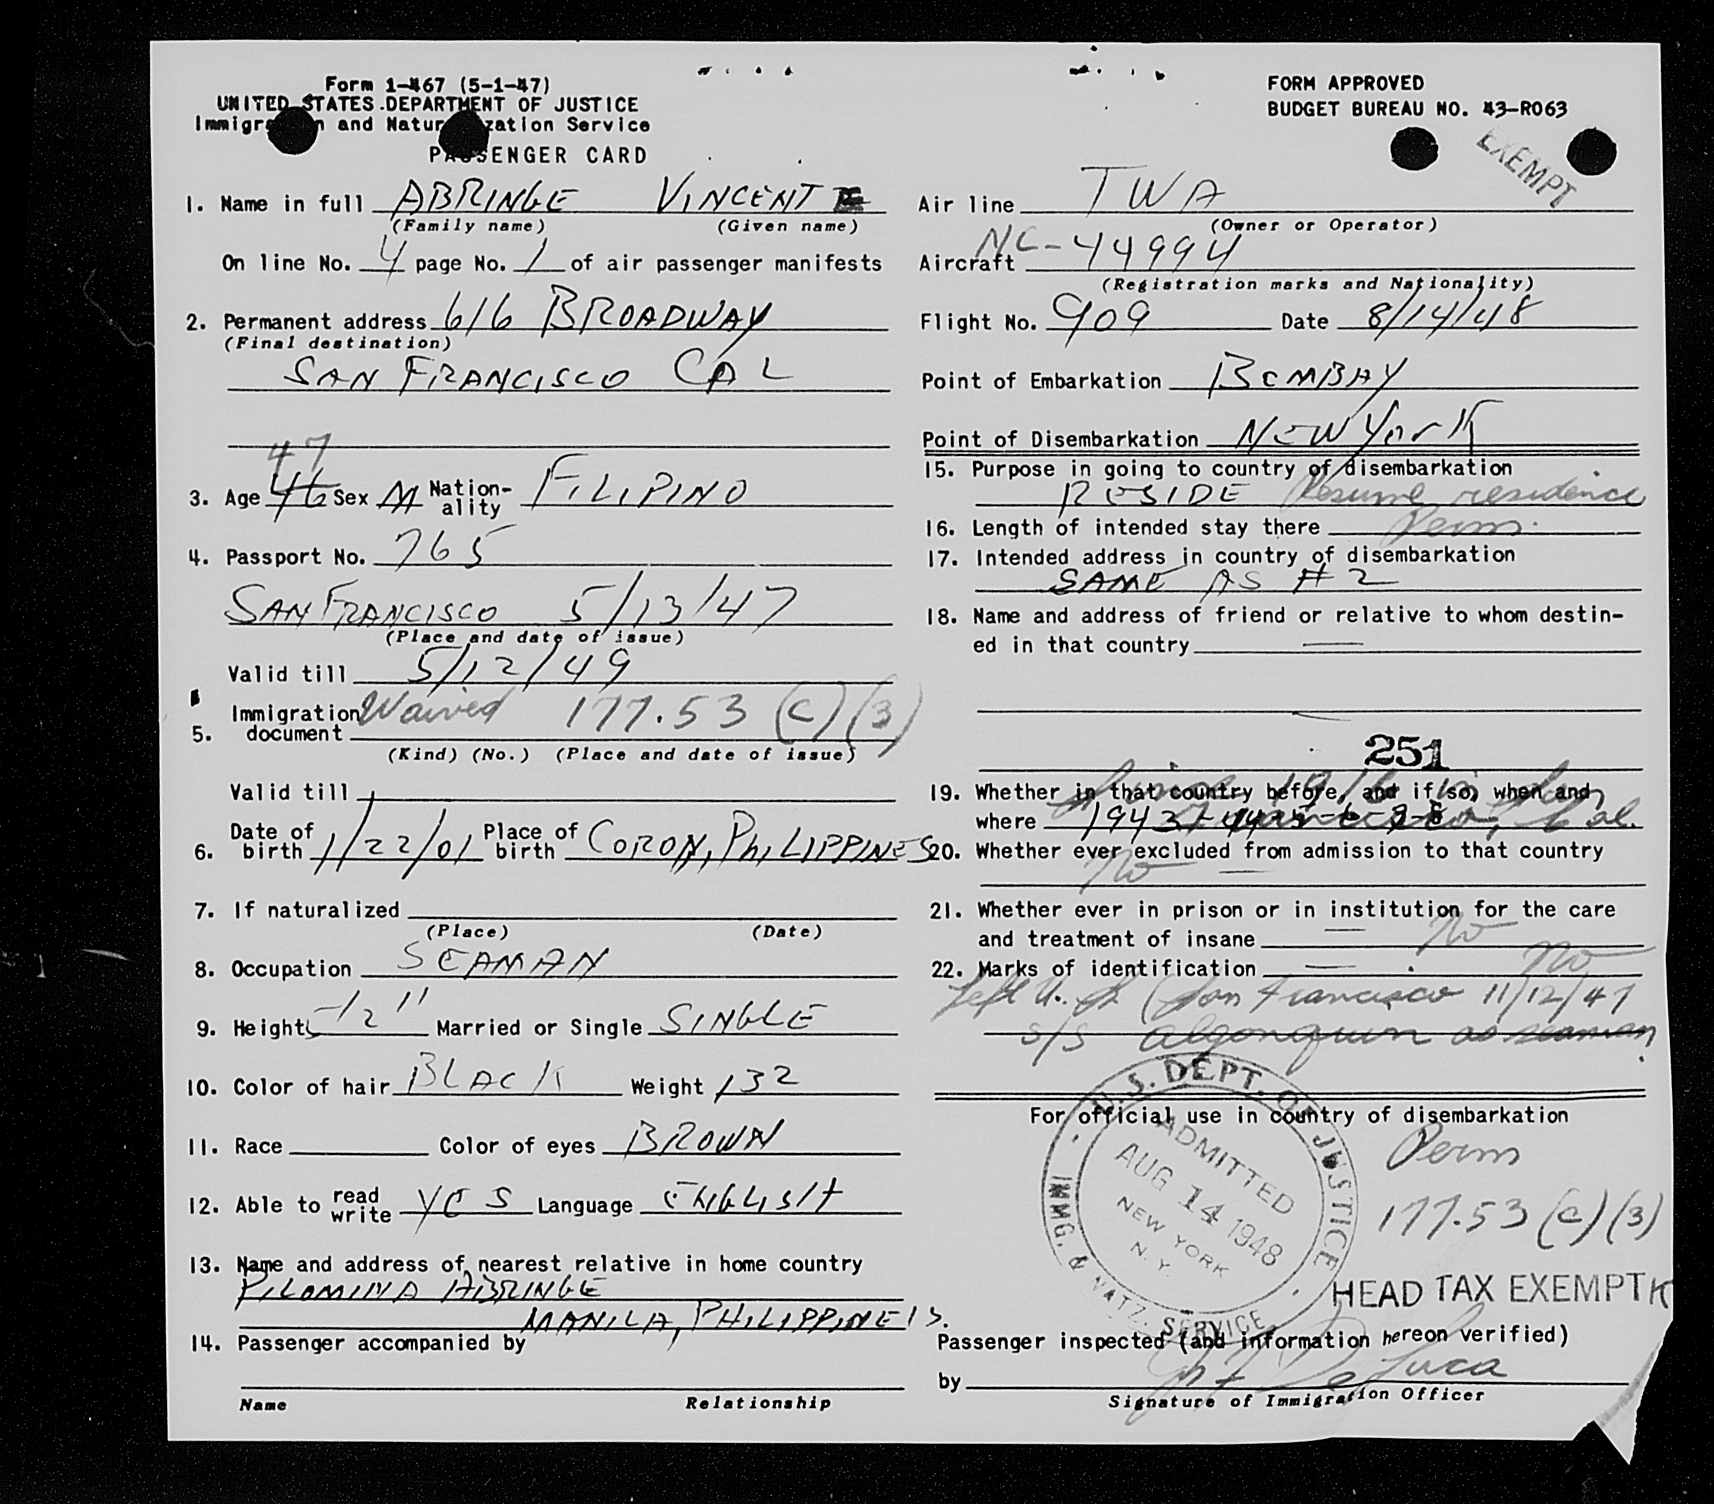 Form 1-467 (5-1-47)
UNITED STATES DEPARTMENT OF JUSTICE
Immigration and Naturalization Service
PASSENGER CARD
FORM APPROVED
BUDGET BUREAU NO. 43-R063
EXEMPT
1. Name in full ABRINGE VINCENT
(Family name) (Given name)
On line No. 4 page No. 1 of air passenger manifests
2. Permanent address 616 BROADWAY
(Final destination)
SAN FRANCISCO CAL
47
3. Age 46 Sex M Nation-ality FILIPINO
4. Passport No. 765
SAN FRANCISCO 5/13/47
(Place and date of issue)
Valid till 5/12/49
5. Immigration document Waived 177.53 (c) (3)
(Kind) (No.) (Place and date of issue)
Valid till
6. Date of birth 1/22/01 Place of birth CORON, PHILIPPINES
7. If naturalized
(Place) (Date)
8. Occupation SEAMAN
9. Height 5'2" Married or Single SINGLE
10. Color of hair BLACK Weight 132
11. Race Color of eyes BROWN
12. Able to read write YES Language ENGLISH
13. Name and address of nearest relative in home country
PILOMINA ABRINGE
MANILA, PHILIPPINE IS.
14. Passenger accompanied by
Name Relationship
Air line TWA
(Owner or Operator)
Aircraft NC-44994
(Registration marks and Nationality)
Flight No. 909 Date 8/14/48
Point of Embarkation BOMBAY
Point of Disembarkation NEW YORK
15. Purpose in going to country of disembarkation
RESIDE Resume residence
16. Length of intended stay there Perm.
17. Intended address in country of disembarkation
SAME AS #2
18. Name and address of friend or relative to whom destin-
ed in that country —
251
19. Whether in that country before, and if so, when and
where Since 1916 in San Francisco, Cal.
20. Whether ever excluded from admission to that country
No —
21. Whether ever in prison or in institution for the care
and treatment of insane — No
22. Marks of identification — No
Left U. S. (San Francisco 11/12/47
S/S Algonquin as seaman
For official use in country of disembarkation
U.S. DEPT. OF JUSTICE
IMMG. & NATZ. SERVICE
ADMITTED
AUG 14 1948
NEW YORK
N. Y.
Perm
177.53 (c) (3)
HEAD TAX EXEMPT
Passenger inspected (and information hereon verified)
by De Luca
Signature of Immigration Officer